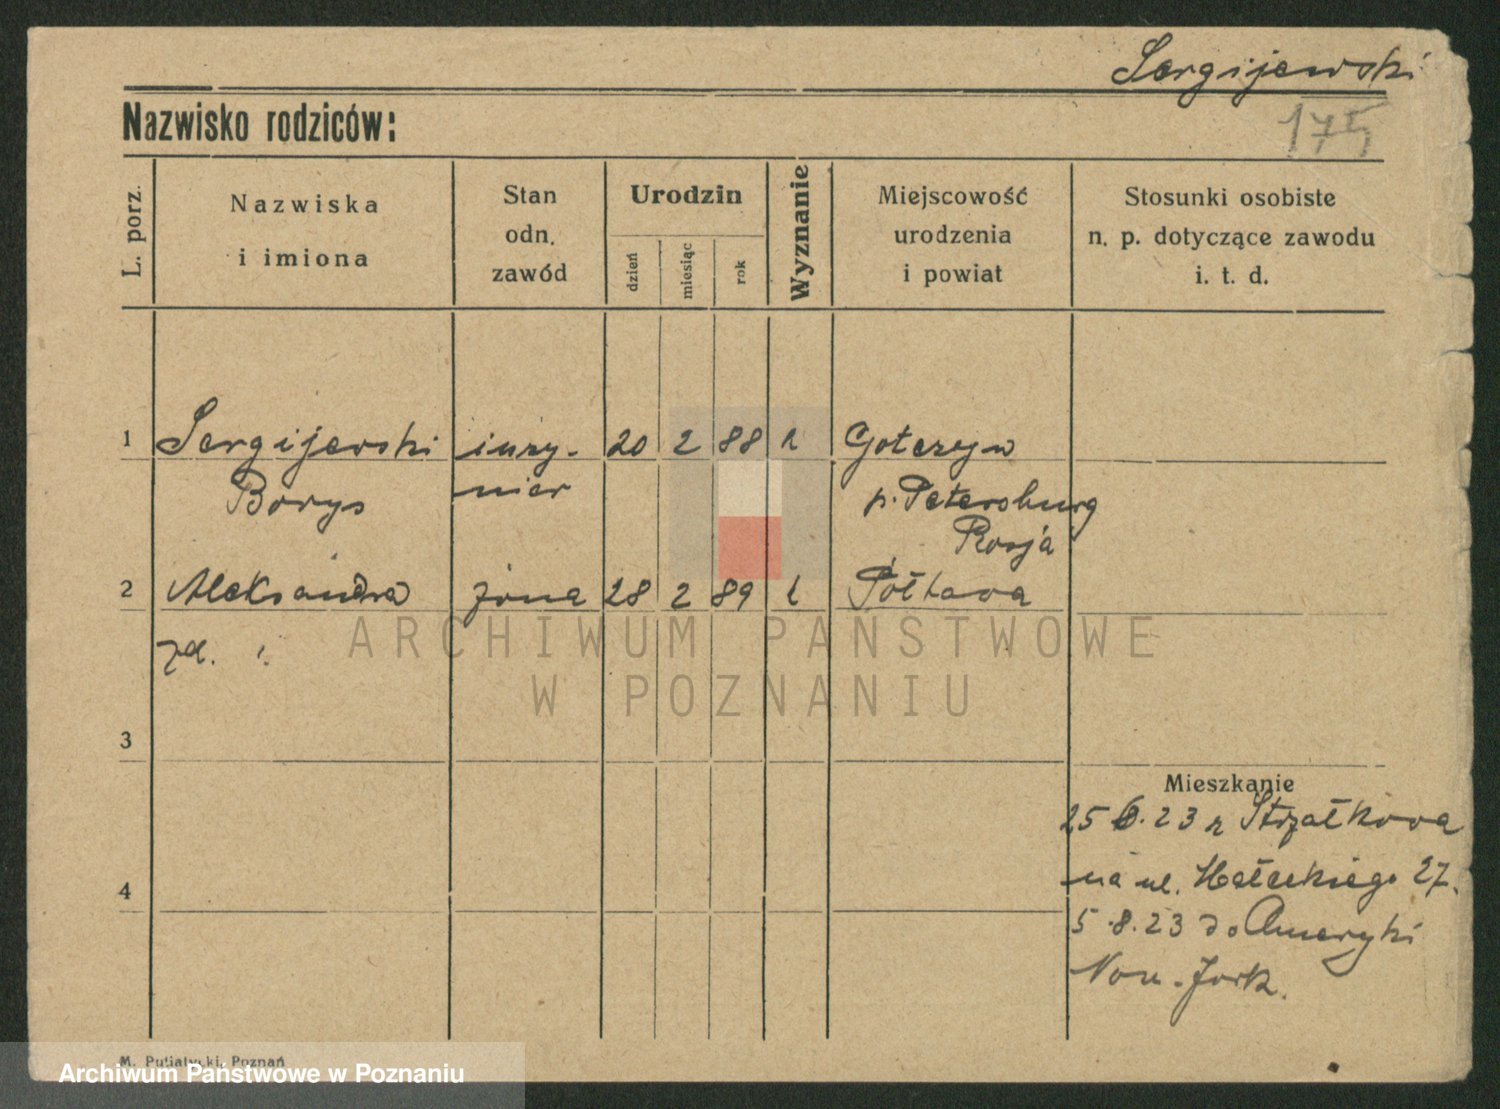 Sergijewski
Nazwisko rodziców:
175
L. porz.
Nazwiska
i imiona
Stan
odn.
zawód
Urodzin
dzień
miesiąc
rok
Wyznanie
Miejscowość
urodzenia
i powiat
Stosunki osobiste
n. p. dotyczące zawodu
i. t. d.
1 Sergijewski inży- 20 2 88 Gotczyn
Borys nier p. Petersburg
Rosja
2 Aleksandra żona 28 2 89 Połtawa
zd.
ARCHIWUM PAŃSTWOWE
W POZNANIU
3
Mieszkanie
25 6. 23 z Strzałkowa
4 na ul. 27.
5.8.23 do Ameryki
Now-Jork.
M. Putiatycki, Poznań
Archiwum Państwowe w Poznaniu